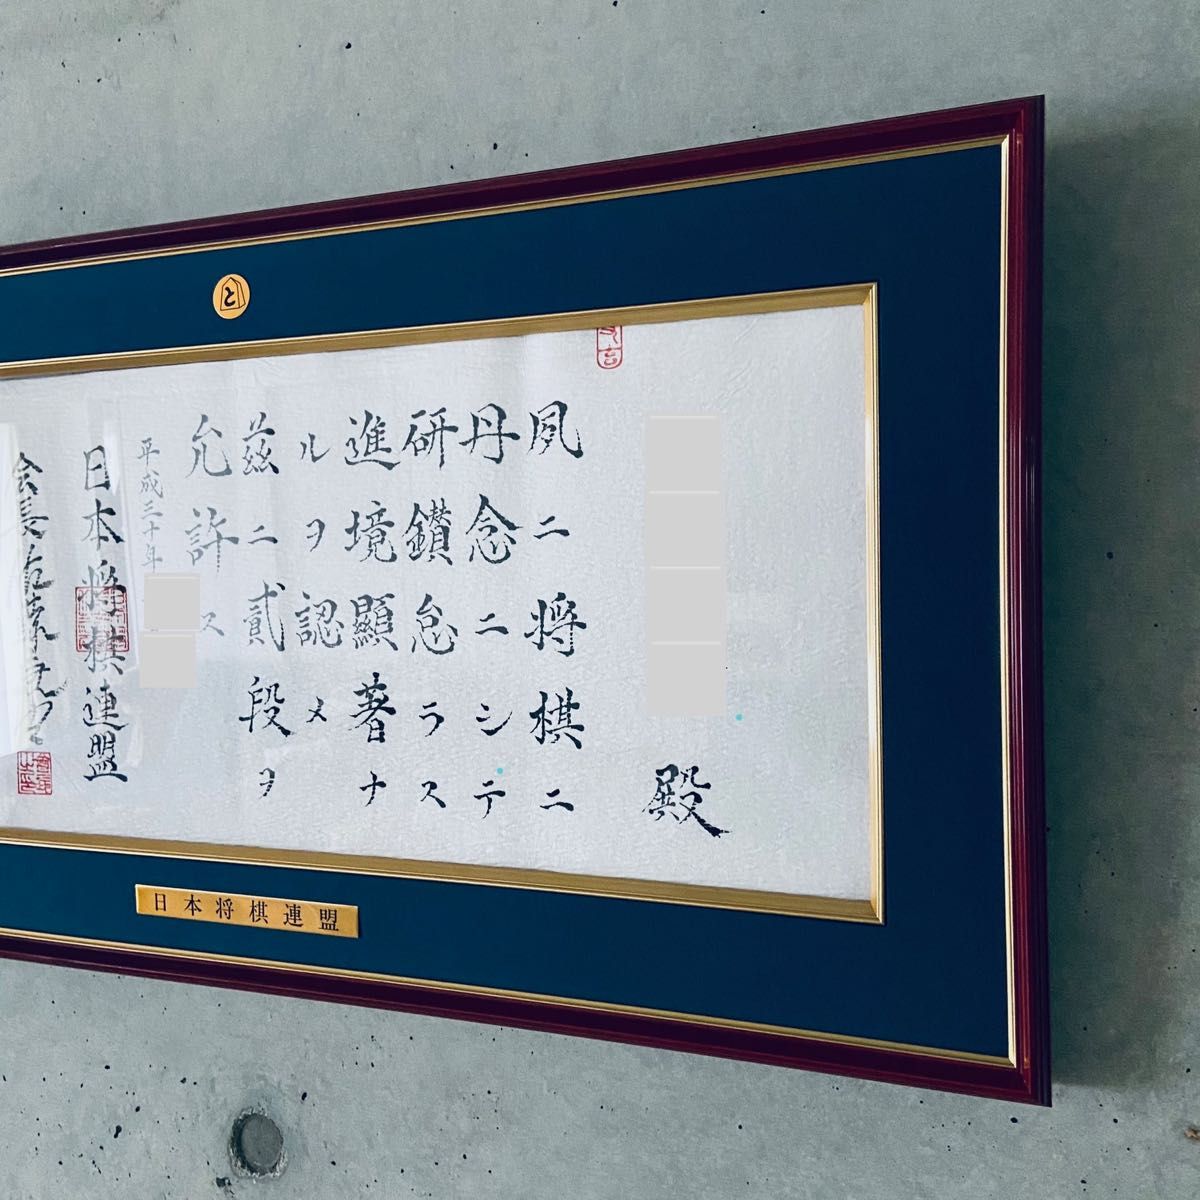 と
殿
夙ニ将棋ニ
丹念ニシテ
研鑽怠ラス
進境顕著ナ
ルヲ認メ
茲ニ貳段ヲ
允許ス
平成三十年
日本将棋連盟
会長佐藤康光
日本将棋連盟